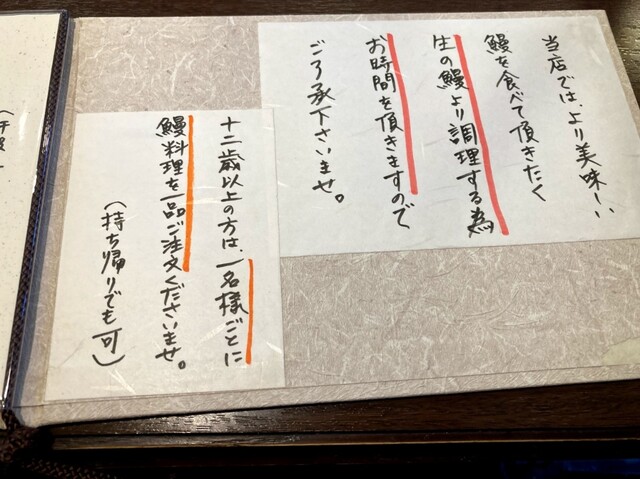 当店では、より美味しい
鰻を食べて頂きたく
生の鰻より調理する為
お時間を頂きますので
ご了承下さいませ。
十二歳以上の方は、一名様ごとに
鰻料理を一品ご注文くださいませ。
（持ち帰りでも可）